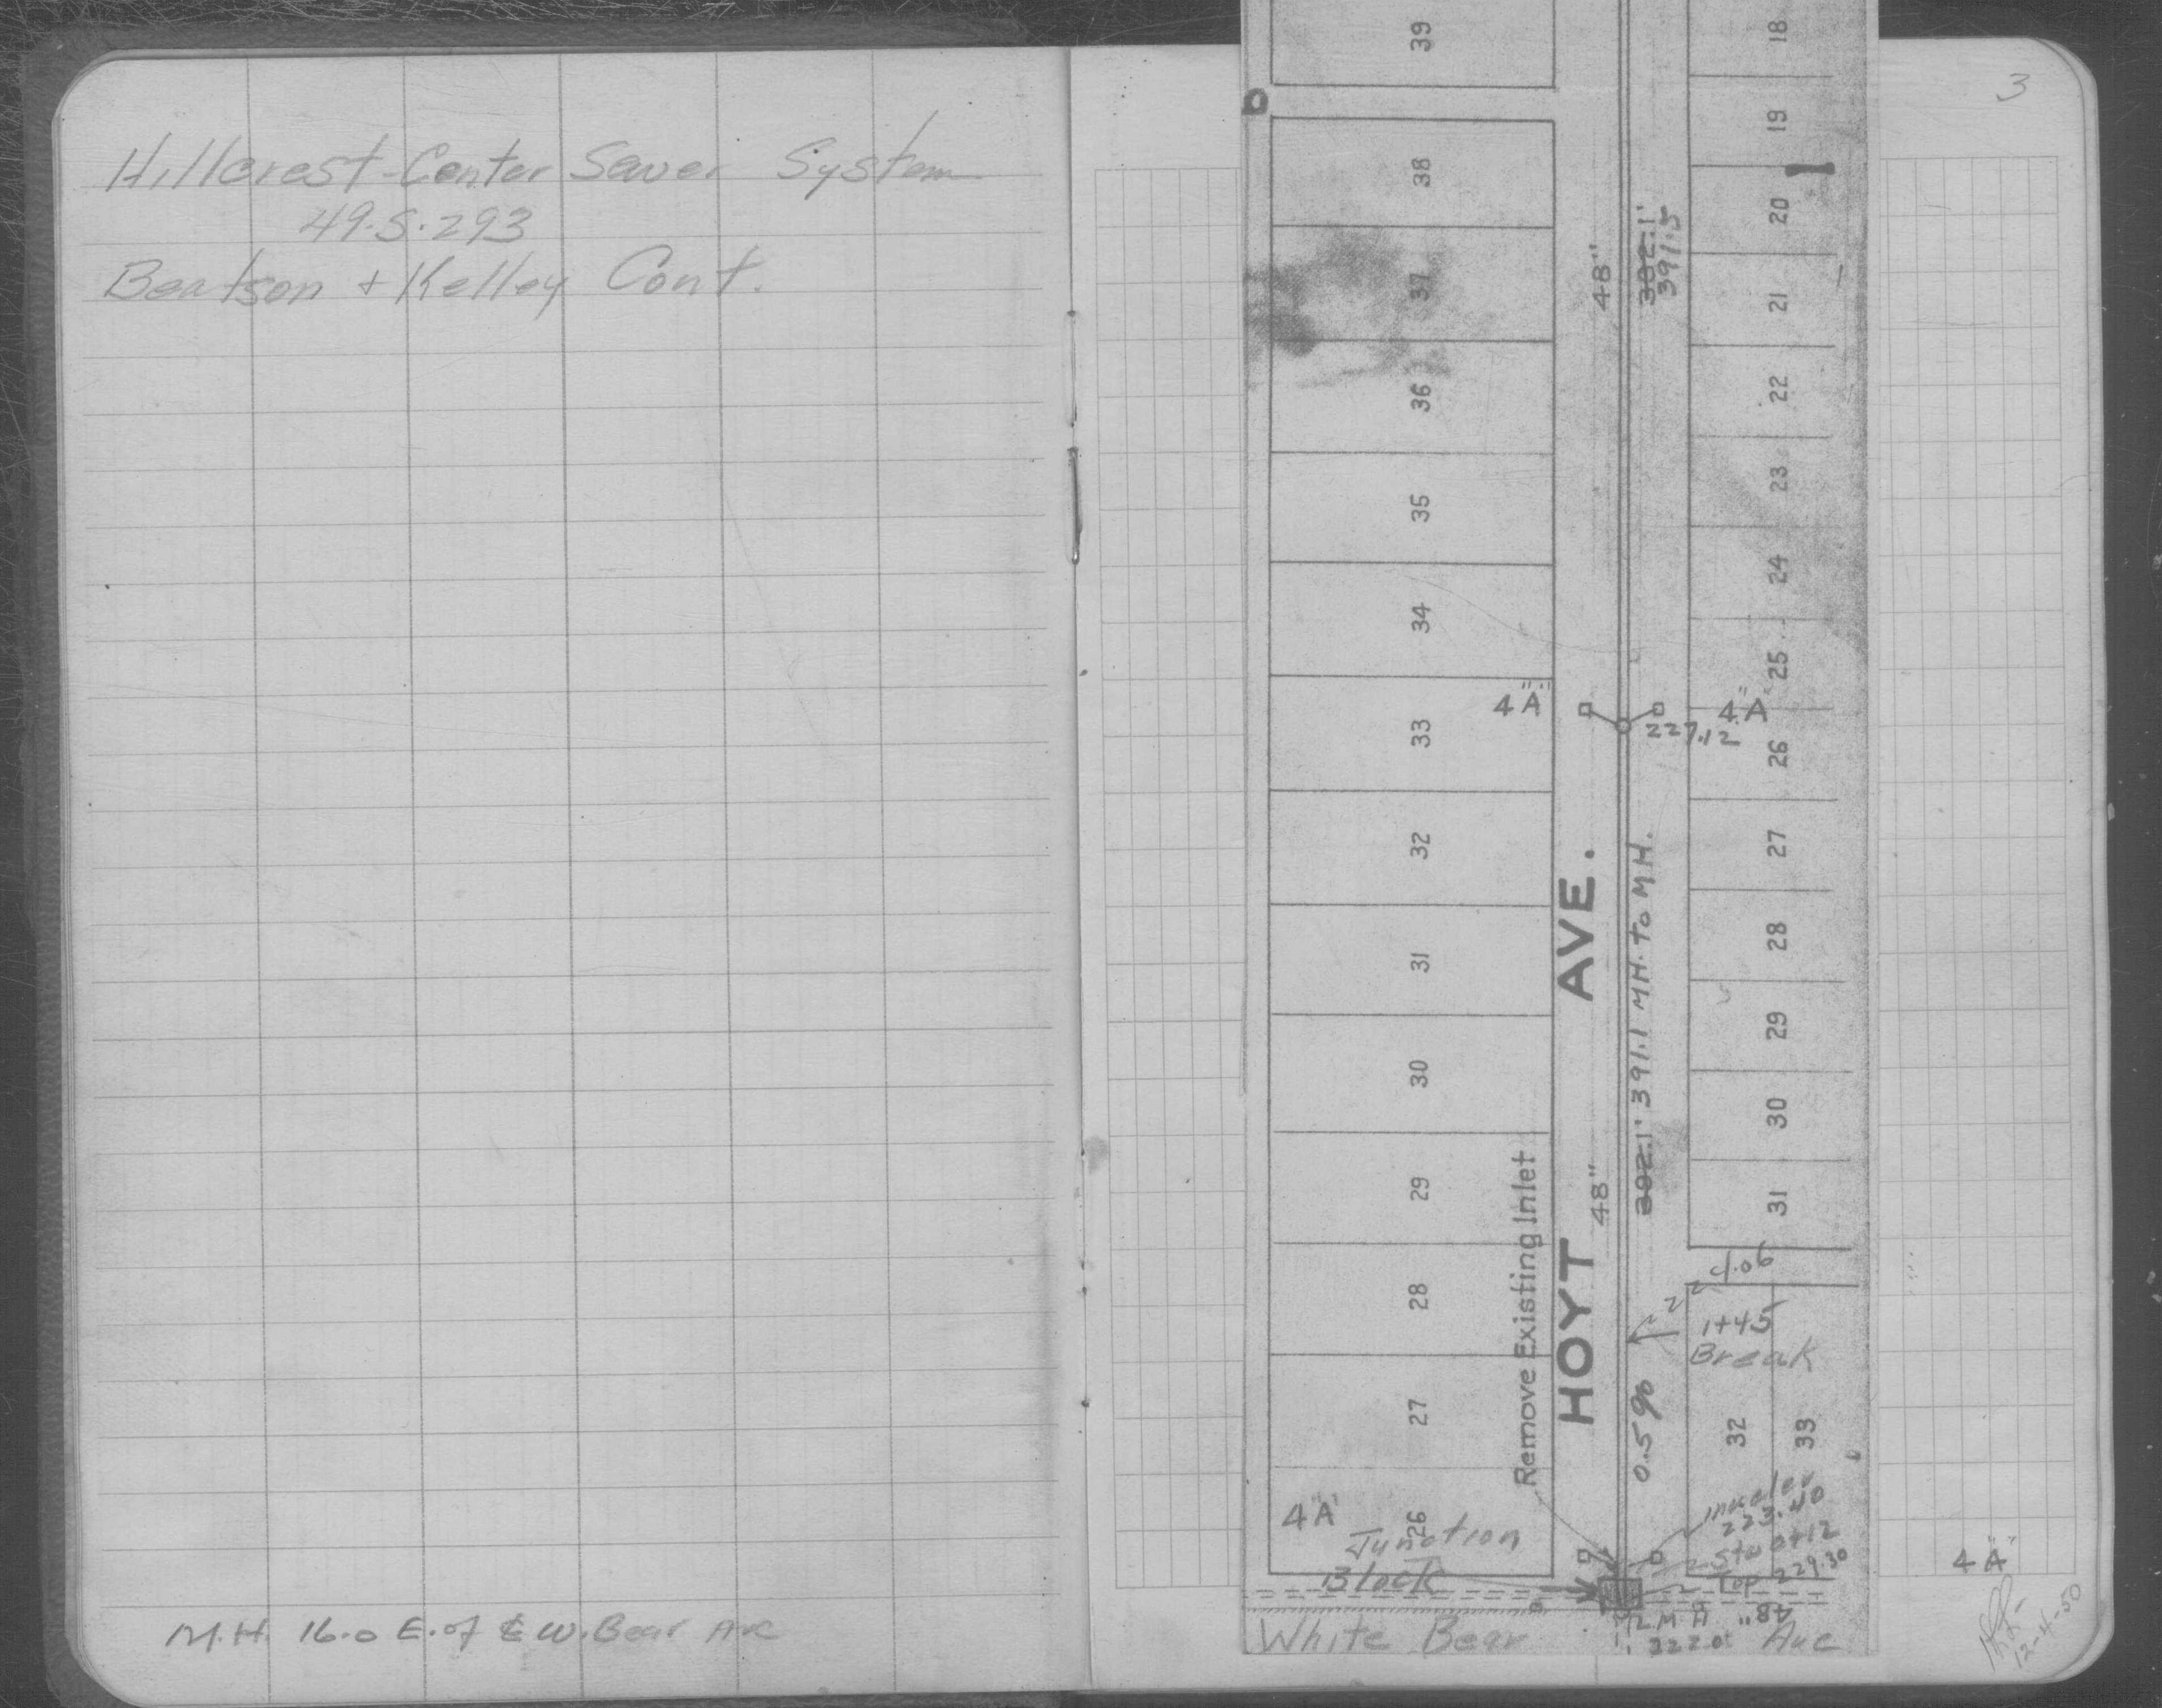 Hillcrest-Center Sewer System
49.S.293
Beatson + Kelley Cont.
M.H. 16.0 E. of ℄ W. Bear Ave
3
39
38
37
36
35
34
33
32
31
30
29
28
27
26
4"A"
4"A"
Junction
Block
Remove Existing Inlet
HOYT AVE.
48"
48"
382.1'
391.5
4"A"
227.12
302.1' 391.1 M.H. to M.H.
0.5%
18
19
20
21
22
23
24
25
26
27
28
29
30
31
4.06
1+45
Break
32
33
223.40
Sta 0+12
Top 229.30
48"
White Bear Ave
4"A"
12-4-50